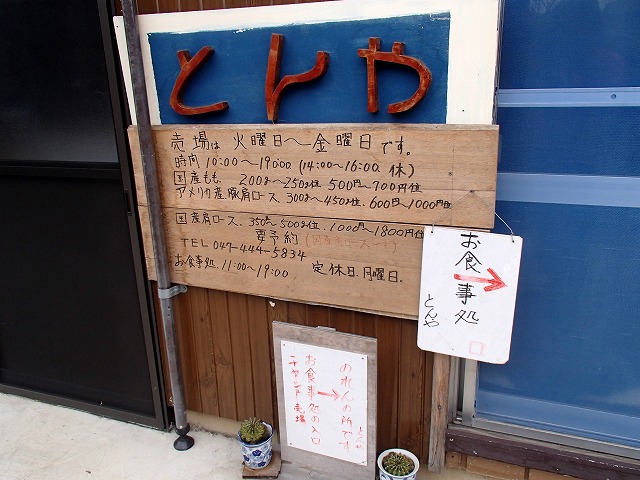 とんや
売場は 火曜日〜金曜日です。
時間 10:00〜19:00 (14:00〜16:00 休)
国産もも、200g〜250g位 500円〜700円位
アメリカ産、豚肩ロース、300g〜450g位、600円〜1000円位
国産肩ロース、350g〜500g位、1000円〜1800円位
要予約
TEL 047-444-5834
お食事処、11:00〜19:00 定休日.月曜日.
お食事処
→
とんや
のれんの所です
とんや
お食事処の入口
→
チャーシュー売場